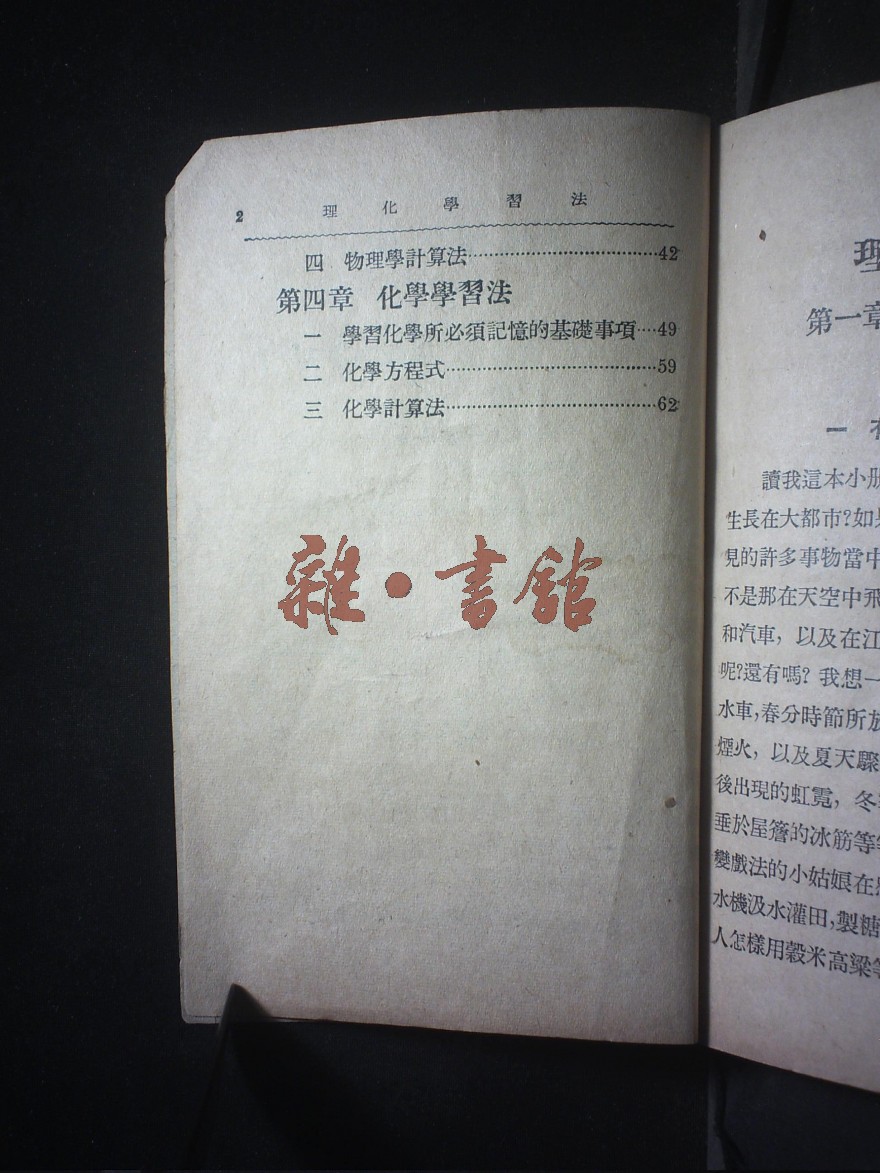 2 理化學習法
四 物理學計算法…………………………42
第四章 化學學習法
一 學習化學所必須記憶的基礎事項…49
二 化學方程式…………………………………59
三 化學計算法…………………………………62
雜·書館
理
第一章
一
讀我這本小册
生長在大都市?如
見的許多事物當中
不是那在天空中飛
和汽車，以及在江
呢?還有嗎? 我想一
水車,春分時節所放
煙火，以及夏天驟
後出現的虹霓，冬
垂於屋簷的冰筋等等
變戲法的小姑娘在
水機汲水灌田,製糖
人怎樣用穀米高粱等